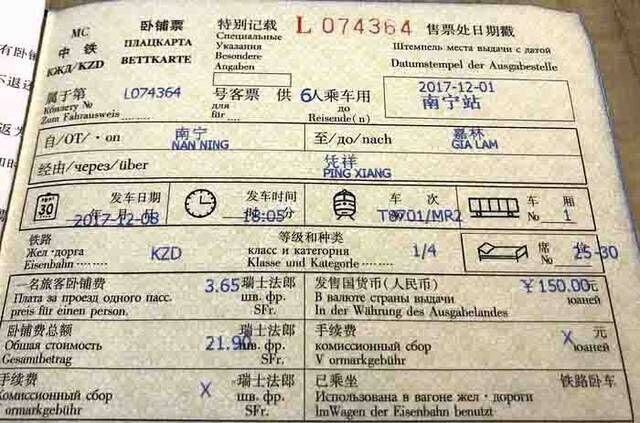 有卧铺
不退还
返发
如时
MC 卧铺票 特别记载 L 074364 售票处日期戳
中铁 ПЛАЦКАРТА Специальные Штемпель места выдачи с датой
КЖД/KZD BETTKARTE Указания Datumstempel der Ausgabestelle
Besondere
Angaben
2017-12-01
南宁站
属于第 L074364 号客票 供 6人乘车用
К билету № для до
Zum Fahrausweis für Reisende(n)
自/ОТ/·on 南宁 至/до/nach 嘉林
NAN NING GIA LAM
经由/через/über 凭祥
PING XIANG
30 发车日期 发车时间 车 次 车 厢
年 月 日 2017-12-08 时 分 18:05 № T8701/MR2 № 1
铁路 等级和种类 席 位
Жел·дорга KZD класс и категория 1/4 25-30
Eisenbahn Klasse und Kategorle
一名旅客卧铺费 3.65 瑞士法郎 发售国货币(人民币) ￥150.00元
Плата за проезд одного пасс. шв. фр. В валюте страны выдачи юаней
preis für einen person. SFr. In der Währung des Ausgabelandes
卧铺费总额 瑞士法郎 手续费 元
Общая стоимость 21.90 шв. фр. комиссионный сбор X юаней
Gesamtbetrag SFr. V ormarkgebühr
手续费 瑞士法郎 已乘坐 铁路卧车
Комиссионный сбор X шв. фр. Использована в вагоне жел·дороги
ormarkgebühr SFr. lmWagen der Eisenbahn benutzt